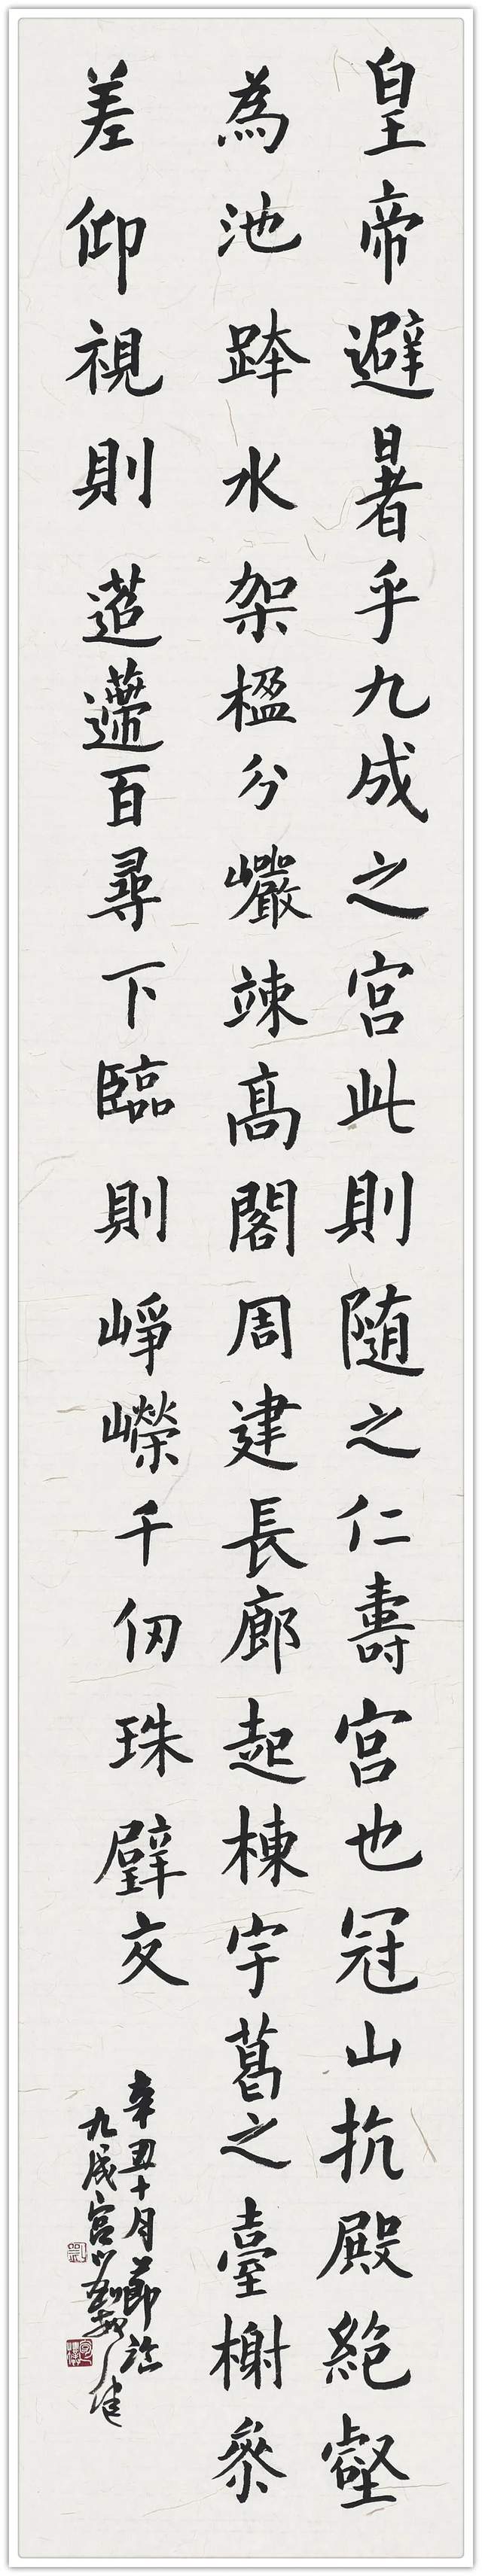 皇帝避暑乎九成之宮此則随之仁壽宮也冠山抗殿絶壑
為池跨水架楹分巗竦高閣周建長廊起棟宇葛之臺榭叅
差仰視則迢遰百尋下臨則崢嶸千仞珠璧交
辛丑十月節臨
九成宮